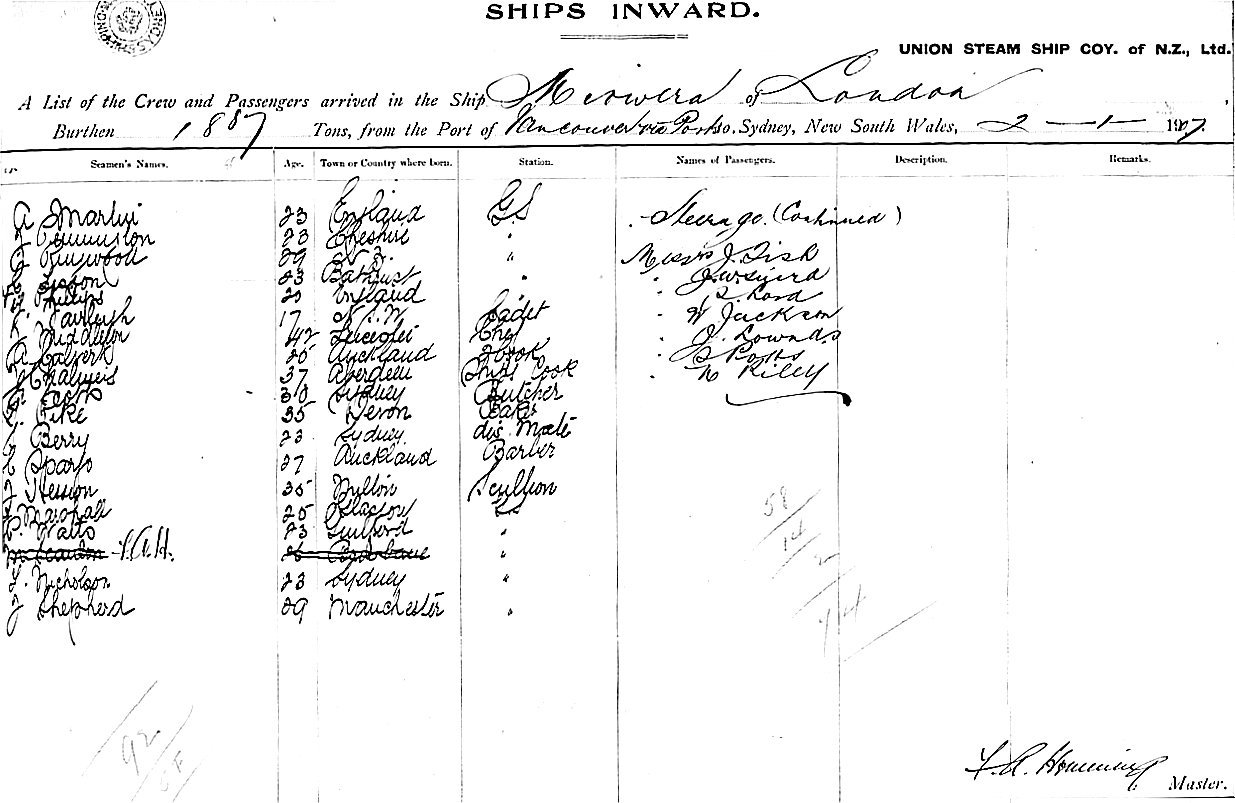 SHIPS INWARD.
UNION STEAM SHIP COY. of N.Z., Ltd.
A List of the Crew and Passengers arrived in the Ship Miowera of London
Burthen 1887 Tons, from the Port of Vancouver via Ports to Sydney, New South Wales, 2 - 1 - 1907.
Seamen's Names. Age. Town or Country where born. Station. Names of Passengers. Description. Remarks.
A Martin 23 England G.S Steerage (Continued)
23 Cheshire "
29 N.Z. " Messrs J. Fish
23 Bathurst "
Phillips England " Lord
K. Fairleigh 17 N.S.W Cadet " W Jackson
Middleton 42 Leicester Chef " J. Lownds
A 25 Auckland 2 Cook " Potts
Chalmers 37 Aberdeen Ships Cook " Riley
Sydney Butcher
Pike 35 Devon Baker
J Berry 23 Sydney
27 Auckland Barber
35 Scullion
Marshall 25 Glasgow
Watts 23 Guilford "
F.A.H. "
F. Nicholson 23 Sydney "
J Shepherd 29 Manchester "
58
14
2
74
92
F. A. Hemming
Master.